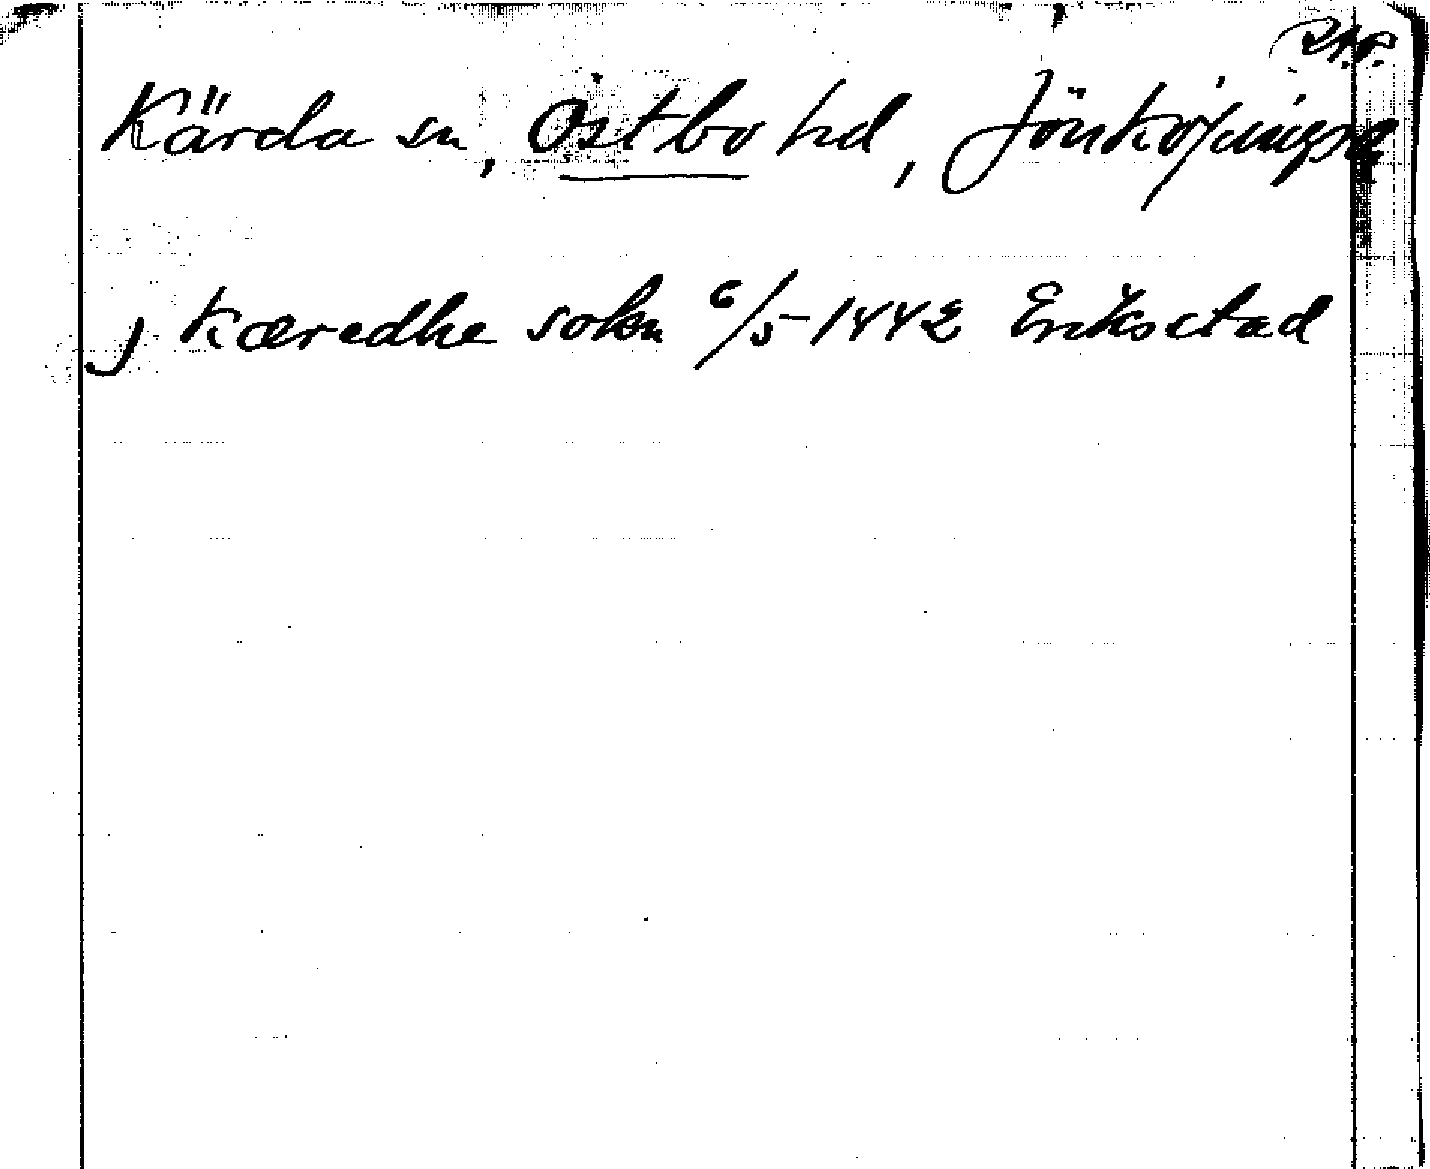 Kärda sn, Östbo hd, Jönköpings
j Kæredhe sokn 6/5-1442 Erikstad